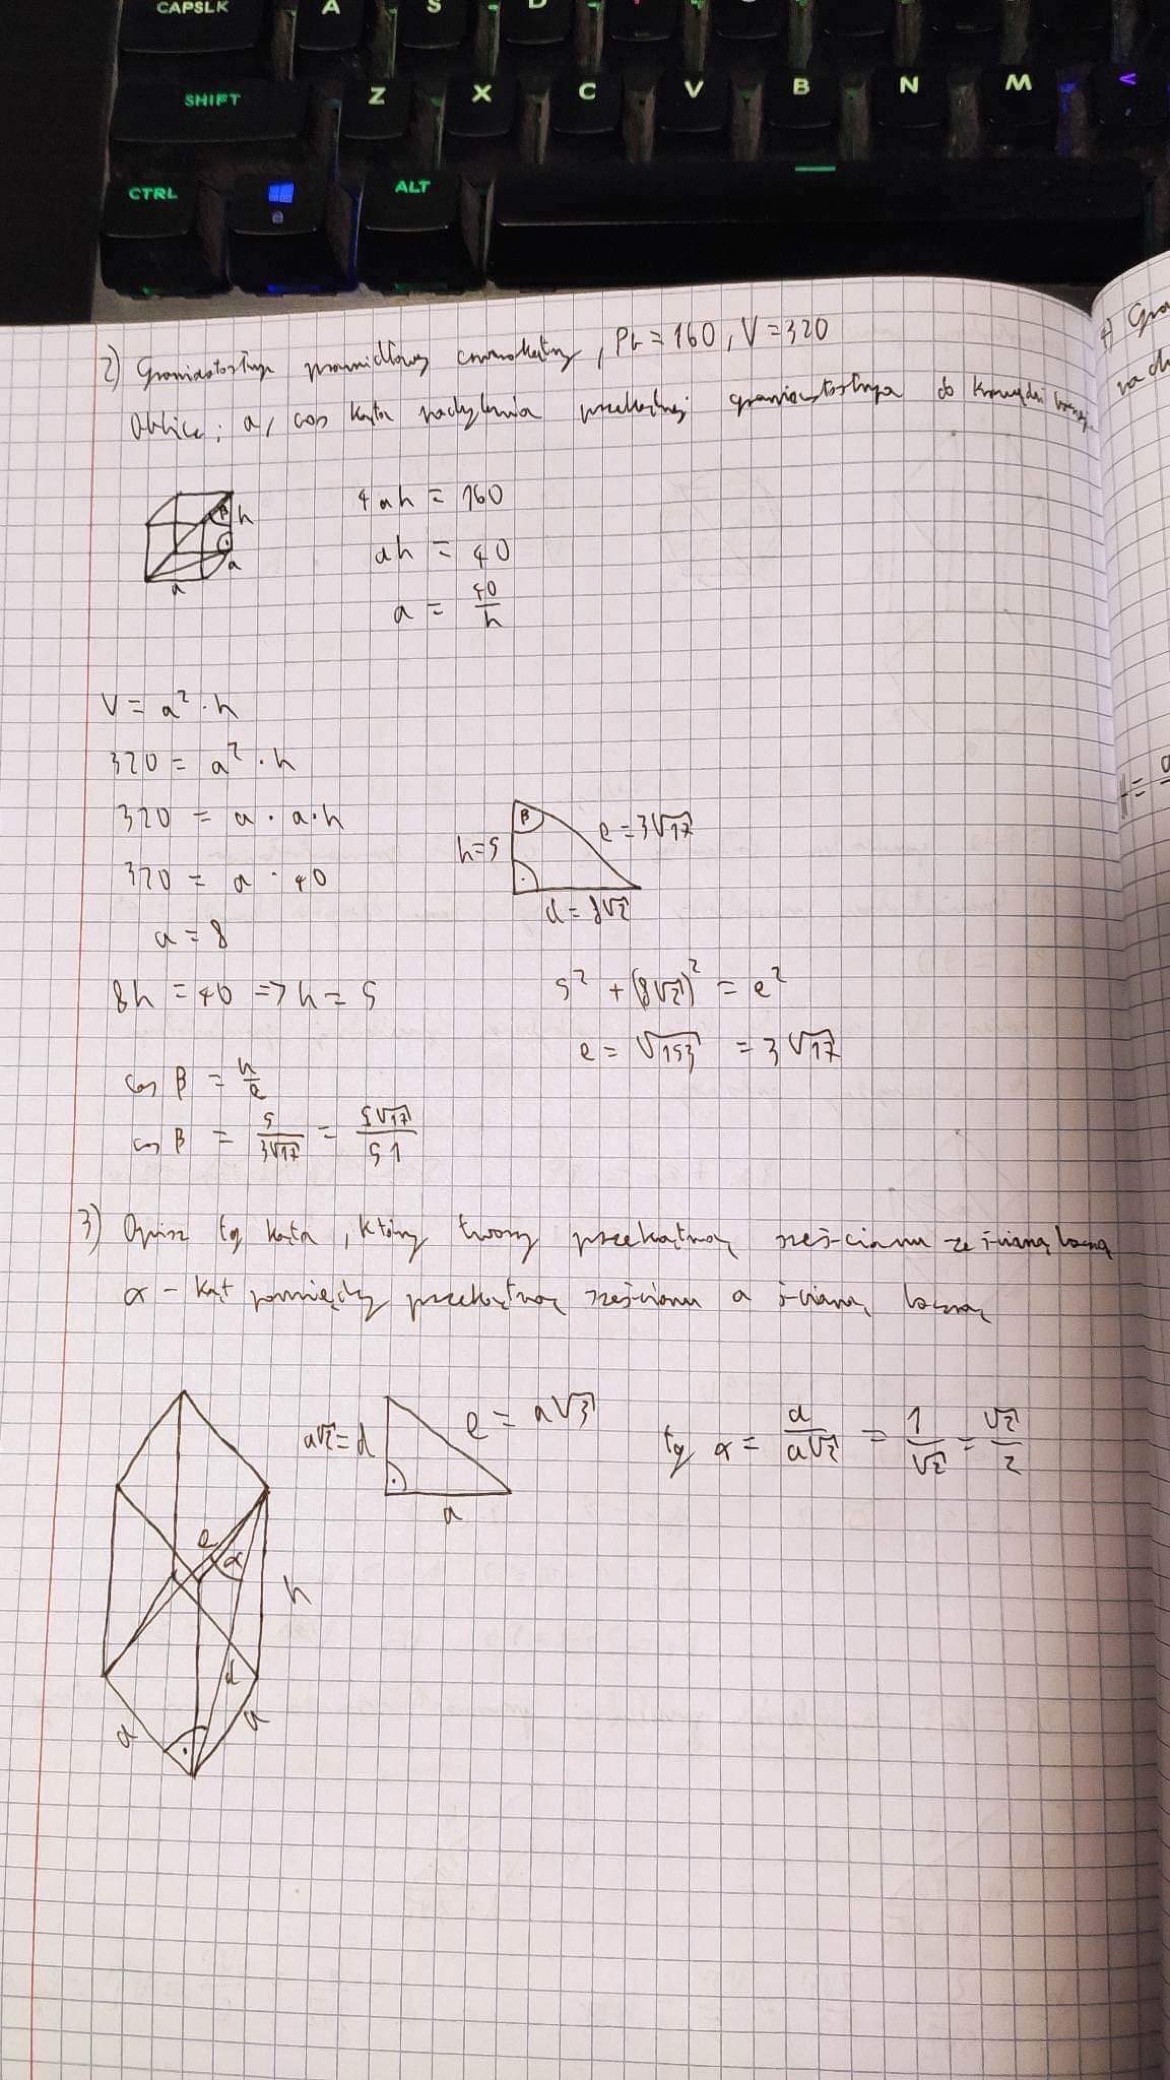 CAPSLK A S D
SHIFT Z X C V B N M <
CTRL ALT
2) Graniastosłup prawidłowy czworokątny, Pb = 160, V = 320
Oblicz: a, cos kąta nachylenia przekątnej graniastosłupa do krawędzi bocznej
4ah = 160
ah = 40
a = 40/h
h
a
a
V = a² · h
320 = a² · h
320 = a · a · h
320 = a · 40
a = 8
8h = 40 => h = 5
β
h = 5
e = 3√17
d = 8√2
5² + (8√2)² = e²
e = √153 = 3√17
cos β = h/e
cos β = 5/3√17 = 5√17/51
3) Opisz tg kąta, który tworzy przekątna sześcianu ze ścianą boczną
α - kąt pomiędzy przekątną sześcianu a ścianą boczną
a√2 = d
e = a√3
a
tg α = a/a√2 = 1/√2 = √2/2
e
α
h
d
a
a
4)